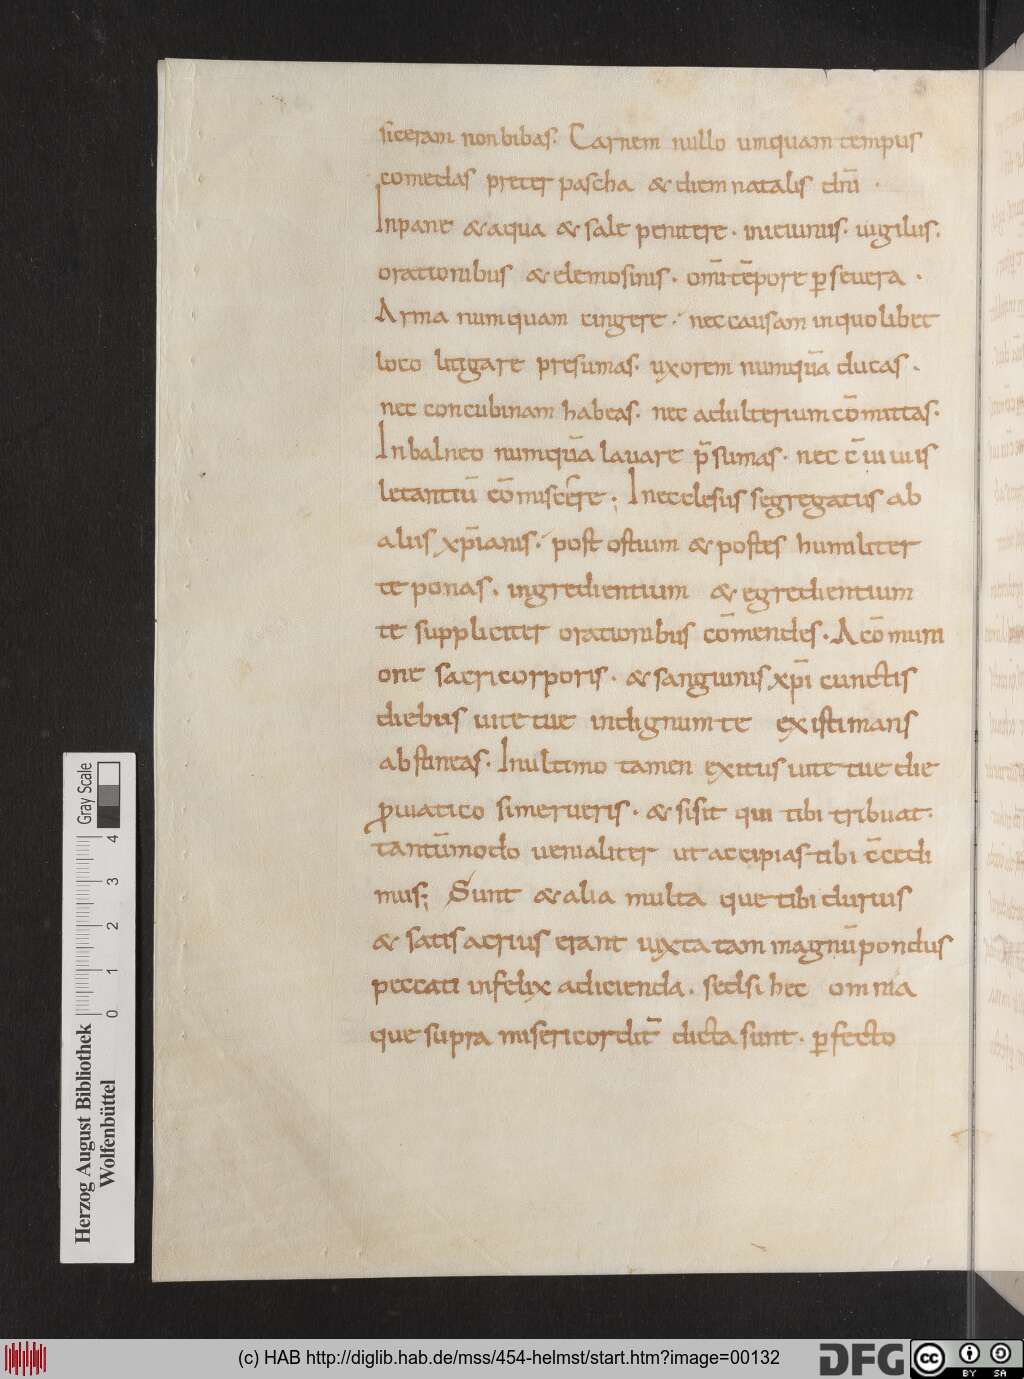 siceram non bibas. Carnem nullo umquam tempus
comedas preter pascha & diem natalis dnī .
Inpane & aqua & sale penitere. inieiuniis. uigiliis.
orationibus & elemosinis. omī tēpore p̱seuera .
Arma numquam cingere. nec causam inquolibet
loco litigare presumas. uxorem numquā ducas .
nec concubinam habeas. nec adulterium cōmittas.
Inbalneo numquā lauare p̄sumas. nec c̄uiuiis
letantiū cōmiscere; Inecclesiis segregatus ab
aliis xp̄ianis. post ostium & postes humiliter
te ponas. ingredientium & egredientium
te suppliciter orationibus cōmendes. Acōmuni
one sacri corporis. & sanguinis xp̄i cunctis
diebus uite tue indignum te existimans
abstineas. Inultimo tamen exitus uite tue die
ꝓuiatico simerueris. & sisit qui tibi tribuat.
tantūmodo uenialiter ut accipias tibi c̄cedi
mus; Sunt & alia multa que tibi durius
& satis acrius erant iuxta tam magnū pondus
peccati infelix adicienda. sed si hec omnia
que supra misericordit̄ dicta sunt. p̱fecto
Gray Scale
4
3
2
1
0
Herzog August Bibliothek
Wolfenbüttel
(c) HAB http://diglib.hab.de/mss/454-helmst/start.htm?image=00132
DFG
cc
BY SA